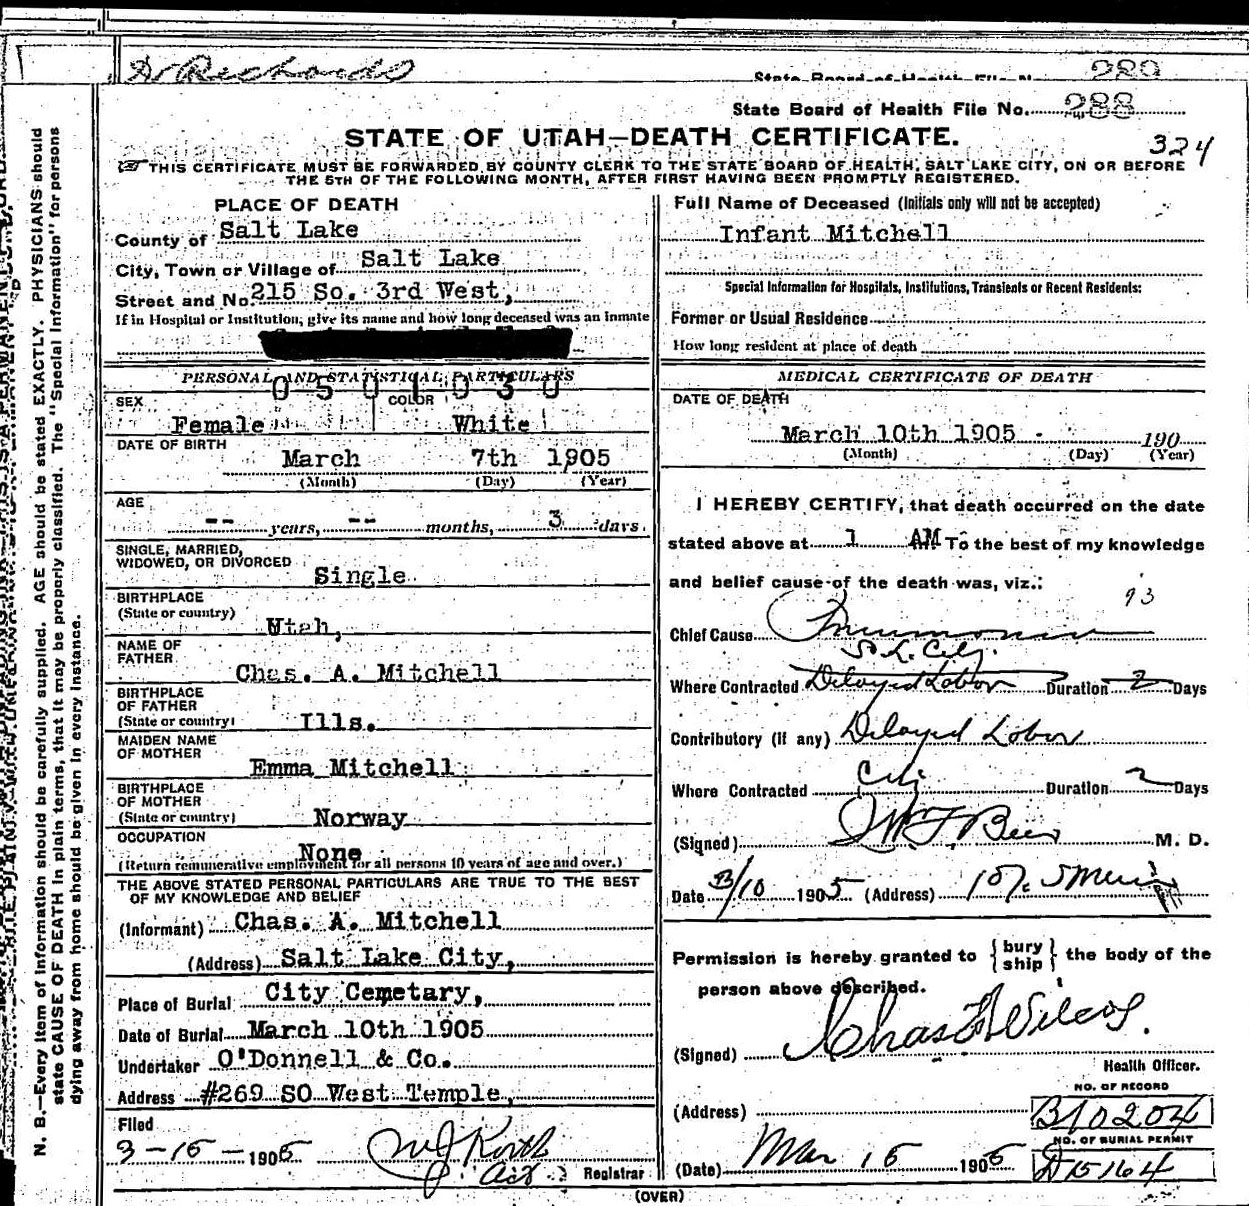 Dr Richards
State Board of Health File No. 289
State Board of Health File No. 288
STATE OF UTAH—DEATH CERTIFICATE.
324
THIS CERTIFICATE MUST BE FORWARDED BY COUNTY CLERK TO THE STATE BOARD OF HEALTH, SALT LAKE CITY, ON OR BEFORE
THE 5TH OF THE FOLLOWING MONTH, AFTER FIRST HAVING BEEN PROMPTLY REGISTERED.
PLACE OF DEATH
County of Salt Lake
City, Town or Village of Salt Lake
Street and No. 215 So. 3rd West,
If in Hospital or Institution, give its name and how long deceased was an Inmate
PERSONAL AND STATISTICAL PARTICULARS
0501030
SEX COLOR
Female White
DATE OF BIRTH
March 7th 1905
(Month) (Day) (Year)
AGE
-- years, -- months, 3 days
SINGLE, MARRIED,
WIDOWED, OR DIVORCED
Single
BIRTHPLACE
(State or country)
Utah,
NAME OF
FATHER
Chas. A. Mitchell
BIRTHPLACE
OF FATHER
(State or country)
Ills.
MAIDEN NAME
OF MOTHER
Emma Mitchell
BIRTHPLACE
OF MOTHER
(State or country)
Norway
OCCUPATION
None
(Return remunerative employment for all persons 10 years of age and over.)
THE ABOVE STATED PERSONAL PARTICULARS ARE TRUE TO THE BEST
OF MY KNOWLEDGE AND BELIEF
(Informant) Chas. A. Mitchell
(Address) Salt Lake City,
Place of Burial City Cemetary,
Date of Burial March 10th 1905
Undertaker O'Donnell & Co.
Address #269 SO West Temple,
Filed
3-15-1905
Act. Registrar
Full Name of Deceased (Initials only will not be accepted)
Infant Mitchell
Special Information for Hospitals, Institutions, Transients or Recent Residents:
Former or Usual Residence
How long resident at place of death
MEDICAL CERTIFICATE OF DEATH
DATE OF DEATH
March 10th 1905 190
(Month) (Day) (Year)
I HEREBY CERTIFY, that death occurred on the date
stated above at 1 AM To the best of my knowledge
and belief cause of the death was, viz.:
93
Chief Cause Pneumonia
S. L. City.
Where Contracted Delayed Labor Duration 2 Days
Contributory (if any) Delayed Labor
Where Contracted City Duration 2 Days
(Signed) M. D.
Date 3/10 1905 (Address)
Permission is hereby granted to { bury ship } the body of the
person above described.
(Signed) Chas F Wilcox.
Health Officer.
NO. OF RECORD
(Address) B10204
NO. OF BURIAL PERMIT
(Date) Mar 15 1905 D15164
(OVER)
N. B.—Every item of information should be carefully supplied. AGE should be stated EXACTLY. PHYSICIANS should
state CAUSE OF DEATH in plain terms, that it may be properly classified. The "Special Information" for persons
dying away from home should be given in every instance.